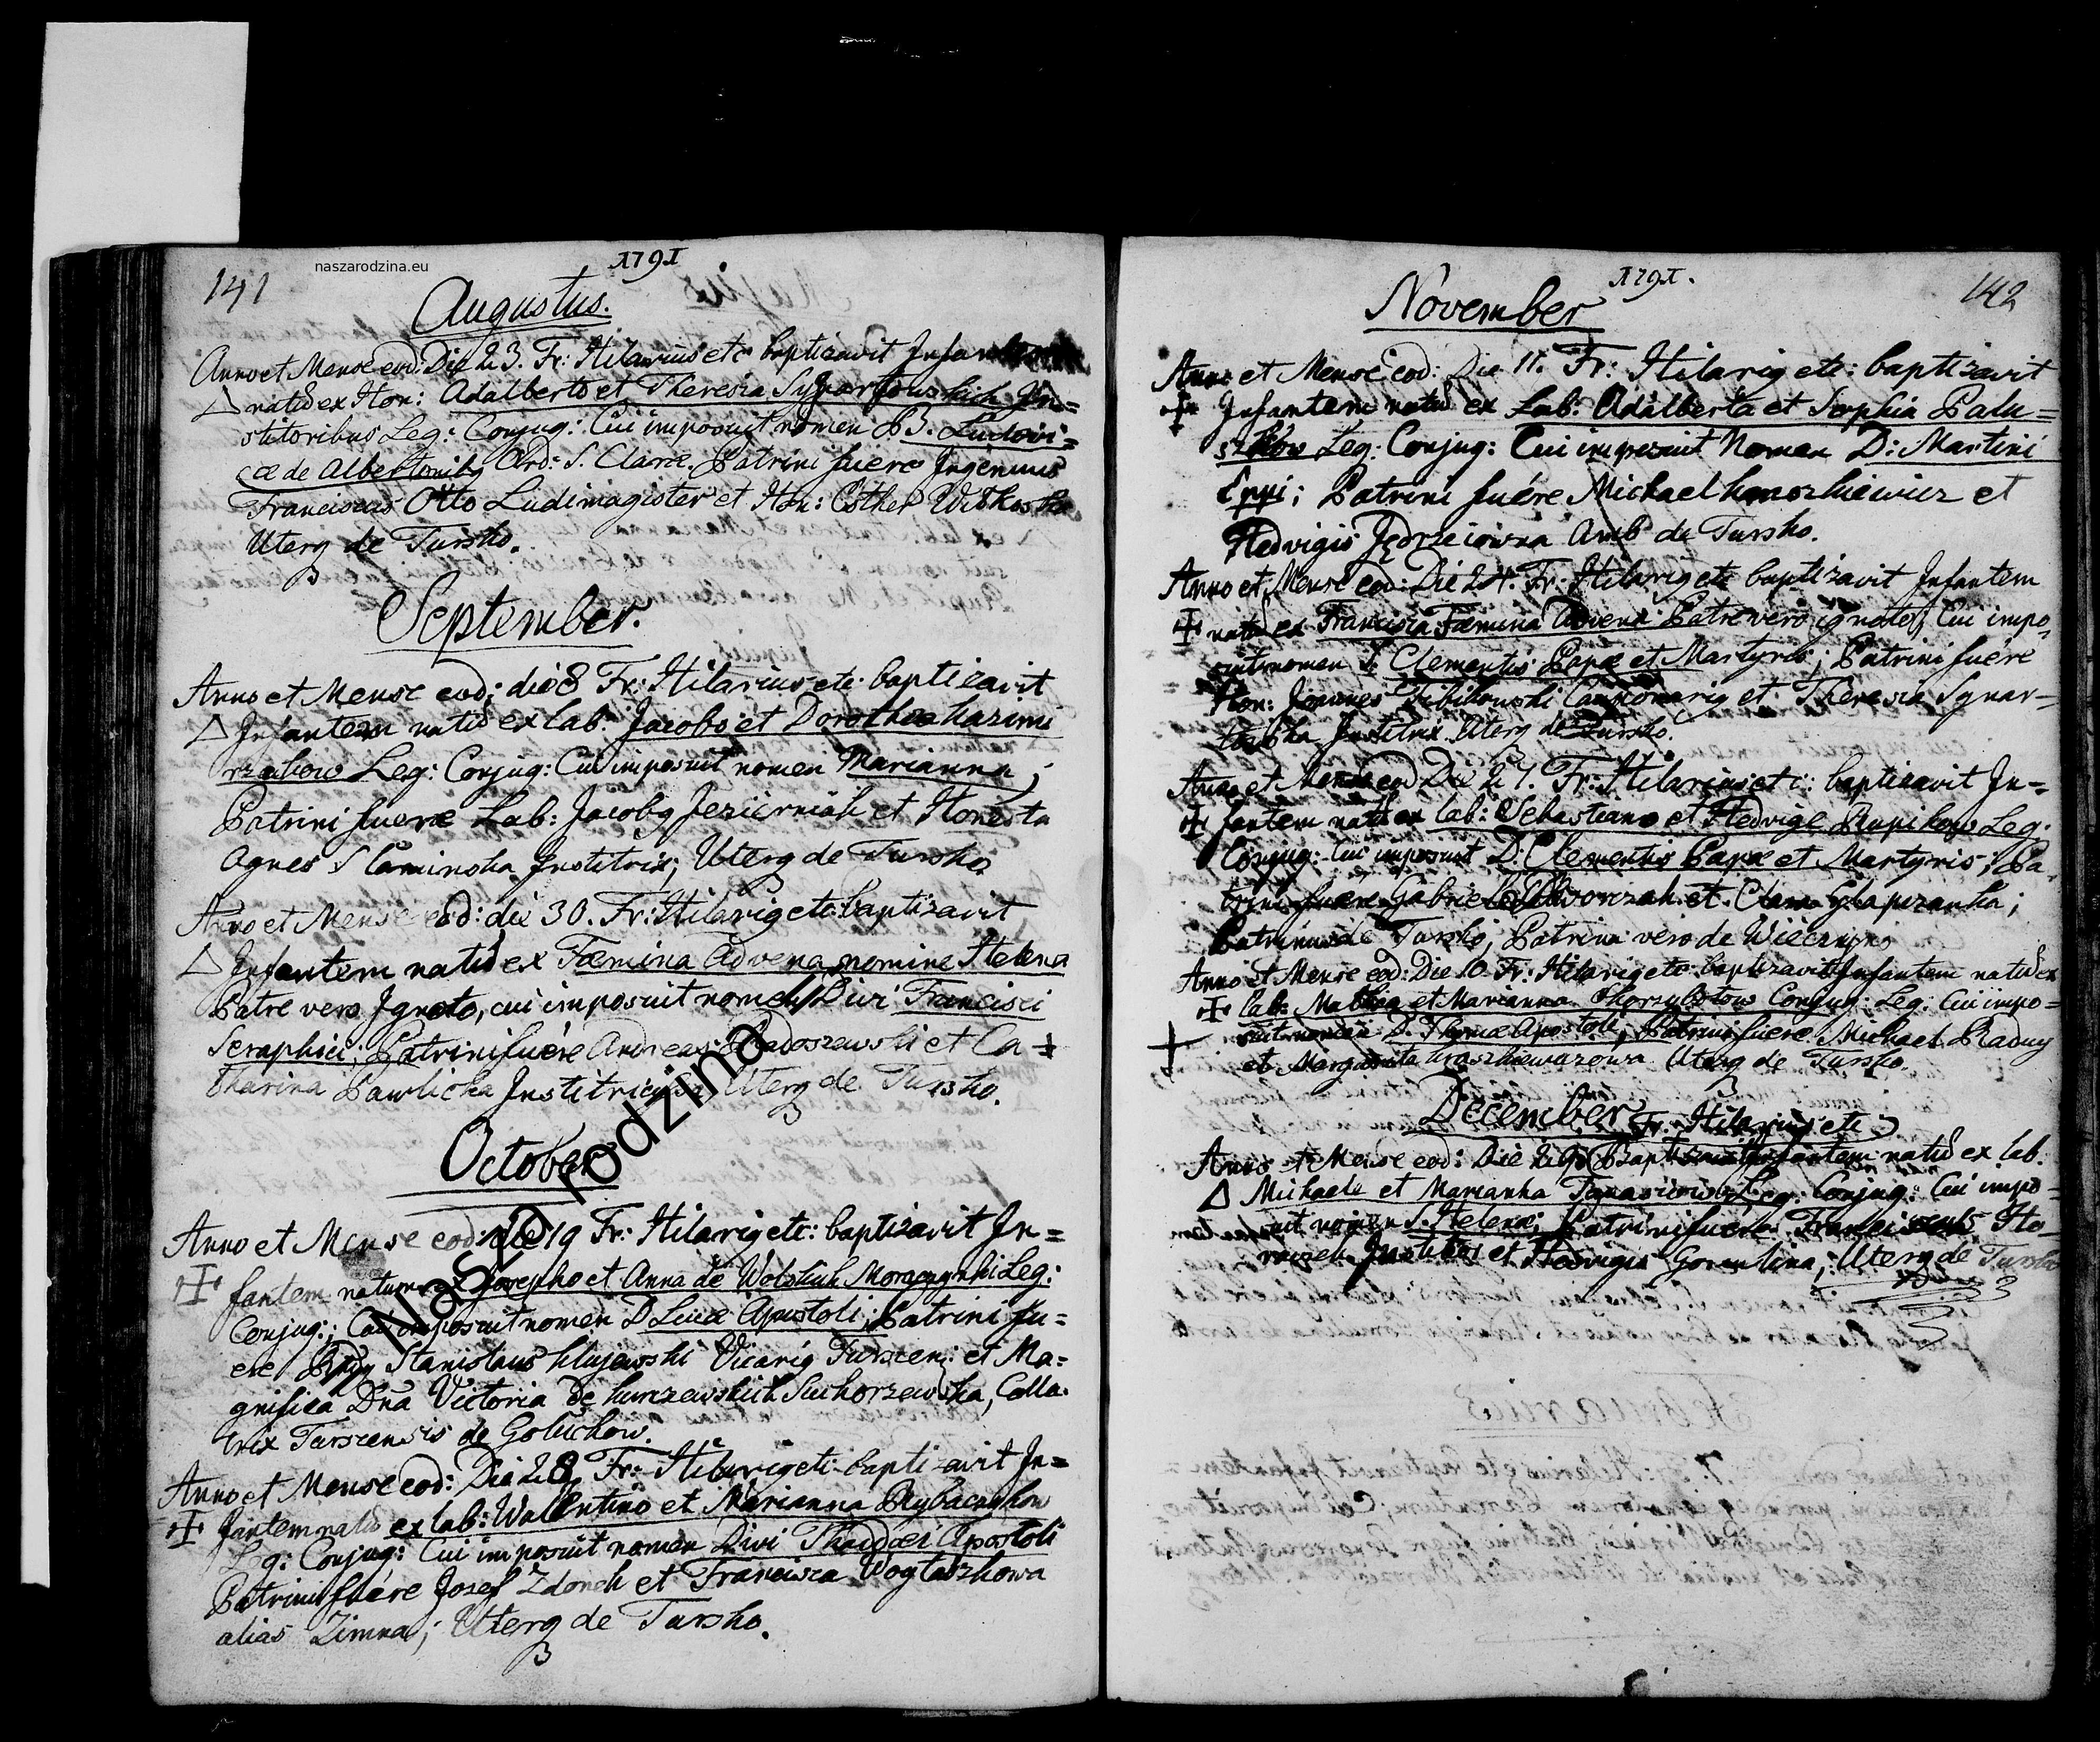 naszarodzina.eu
1791
141
Augustus.
Anno et Mense eod: Die 23. Fr: Hilarius etc baptizavit
natũ ex Hon: Adalberto et Theresia In=
stitoribus Leg: Conjug: Cui imposuit nomen B. Ludovi=
cæ de Ord: S. Claræ. Patrini fuere Ingenuus
Franciscus Otto Ludimagister et Hon: Esther Witkoska
Uterq de Tursko.
September.
Anno et Mense eod: die 8 Fr: Hilarius etc baptizavit
Infantem natũ ex lab: Jacobo et Dorothea Kazimi
rzakow Leg: Conjug: Cui imposuit nomen Marianna;
Patrini fuere Lab: Jacobq Jezierniak et Honesta
Agnes Slaminska Institrix; Uterq de Tursko
Anno et Mense eod: die 30. Fr: Hilariq etc baptizavit
Infantem natũ ex Fæmina Advena nomine Helena
Patre vero Ignoto, cui imposuit nomen Divi Francisci
Seraphici; Patrini fuére Andreas Radoszewski et Ca
tharina Pawlicka Uterq de Tursko.
October
Anno et Mense eod: die 19 Fr: Hilariq etc: baptizavit In=
fantem natum ex Josepho et Anna de Wolskich Moraczynski Leg:
Conjug:; Cui imposuit nomen D Lucæ Apostoli; Patrini fu=
ere Stanislaus Klujewski Vicariq Turscen: et Ma=
gnifica Dña Victoria de Kurczewskich Suchorzewska, Colla
trix Turscensis de Goluchow.
Anno et Mense eod: Die 28 Fr: Hilariq etc baptizavit In=
fantem natũ ex lab: Walentino et Marianna Rybaczykow
Leg: Conjug: Cui imposuit nomen Divi Thaddæi Apostoli
Patrini fuére Jozef Zdonek et Francisca Wogtaszkowa
alias Zimna; Uterq de Tursko.
Nasza rodzina
1791.
142
November
Anno et Mense eod: Die 11. Fr: Hilariq etc: baptizavit
Infantem natũ ex Lab: Adalberto et Sophia Palu=
szkow Leg: Conjug: Cui imposuit Nomen D: Martini
Eppi; Patrini fuére Michael et
Hedvigis Jędrzeiowna Amb de Tursko.
Anno et Mense eod: Die 24. Fr: Hilariq etc baptizavit Infantem
natũ ex Francisca Fæmina Advena Patre vero ignoto; Cui impo
suit nomen S. Clementis Papæ et Martyris; Patrini fuére
Hon: Joannes et Theresia Synar=
Institrix Uterq de Tursko.
Anno et Mense eod Die 27. Fr: Hilarius etc: baptizavit In=
fantem natũ ex lab: Sebastiano et Hedvige Rupikow Leg:
Conjug: Cui imposuit D. Clementis Papæ et Martyris; Pa
trini fuére Gabriel et Clara Glapczanka;
Patrinus de Tursko, Patrina vero de Wieczyn
Anno et Mense eod: Die 10. Fr: Hilariq etc baptizavit Infantem natũ ex
lab: Mathia et Marianna Conjug: Leg: Cui impo=
suit nomen D. Thomæ Apostoli; Patrini fuére Michael Raduy
et Margarita Uterq de Tursko.
December
Fr: Hilarius etc
Anno et Mense eod: Die 29 Baptizavit Infantem natũ ex lab.
Michaele et Marianna Leg: Conjug: Cui impo=
suit nomen S. Helenæ; Patrini fuere Franciscus
et Hedvigis Uterq de Tursko